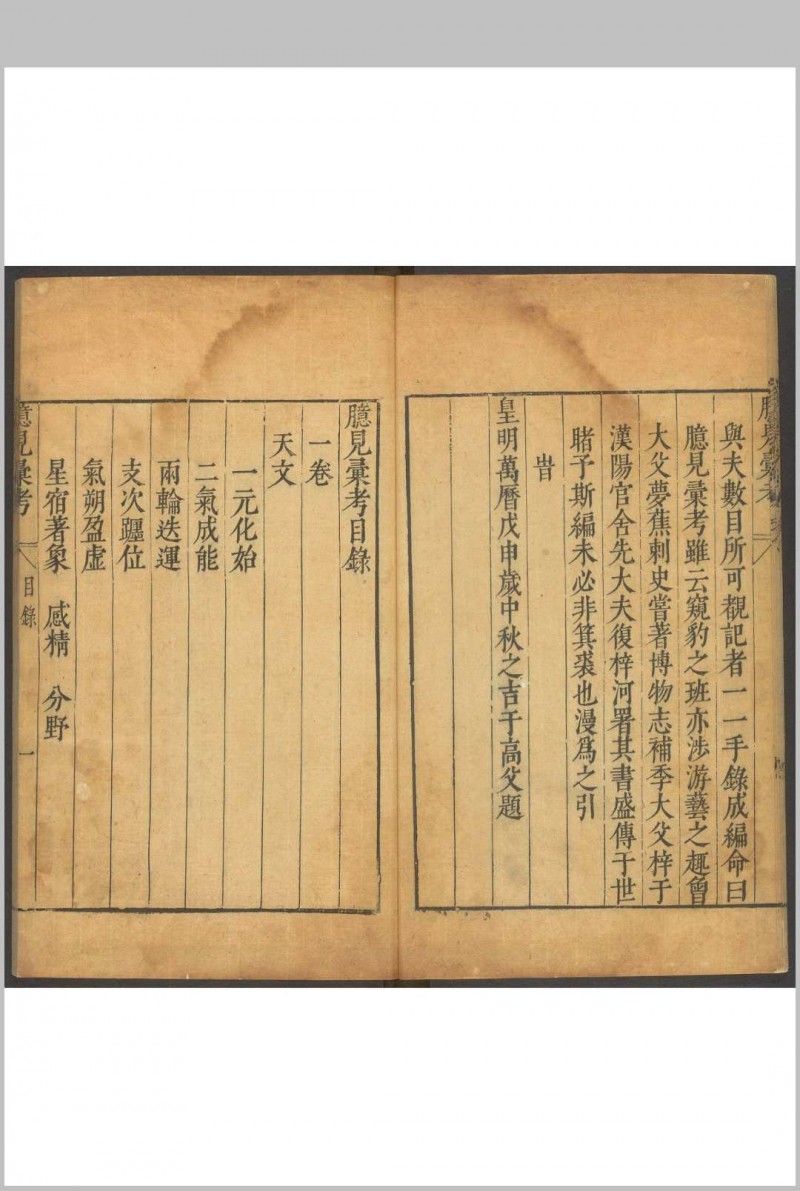 與夫數目所可覩記者一一手錄成編命曰
臆見彙考雖云窺豹之班亦涉游藝之趣曾
大父夢蕉刺史嘗著博物志補季大父梓于
漢陽官舍先大夫復梓河署其書盛傳于世
睹予斯編未必非箕裘也漫爲之引
旹
皇明萬曆戊申歲中秋之吉于高父題
臆見彙考目錄
一卷
天文
一元化始
二氣成能
兩輪迭運
支次躔位
氣朔盈虛
星宿著象 感精 分野
臆見彙考 目錄 一